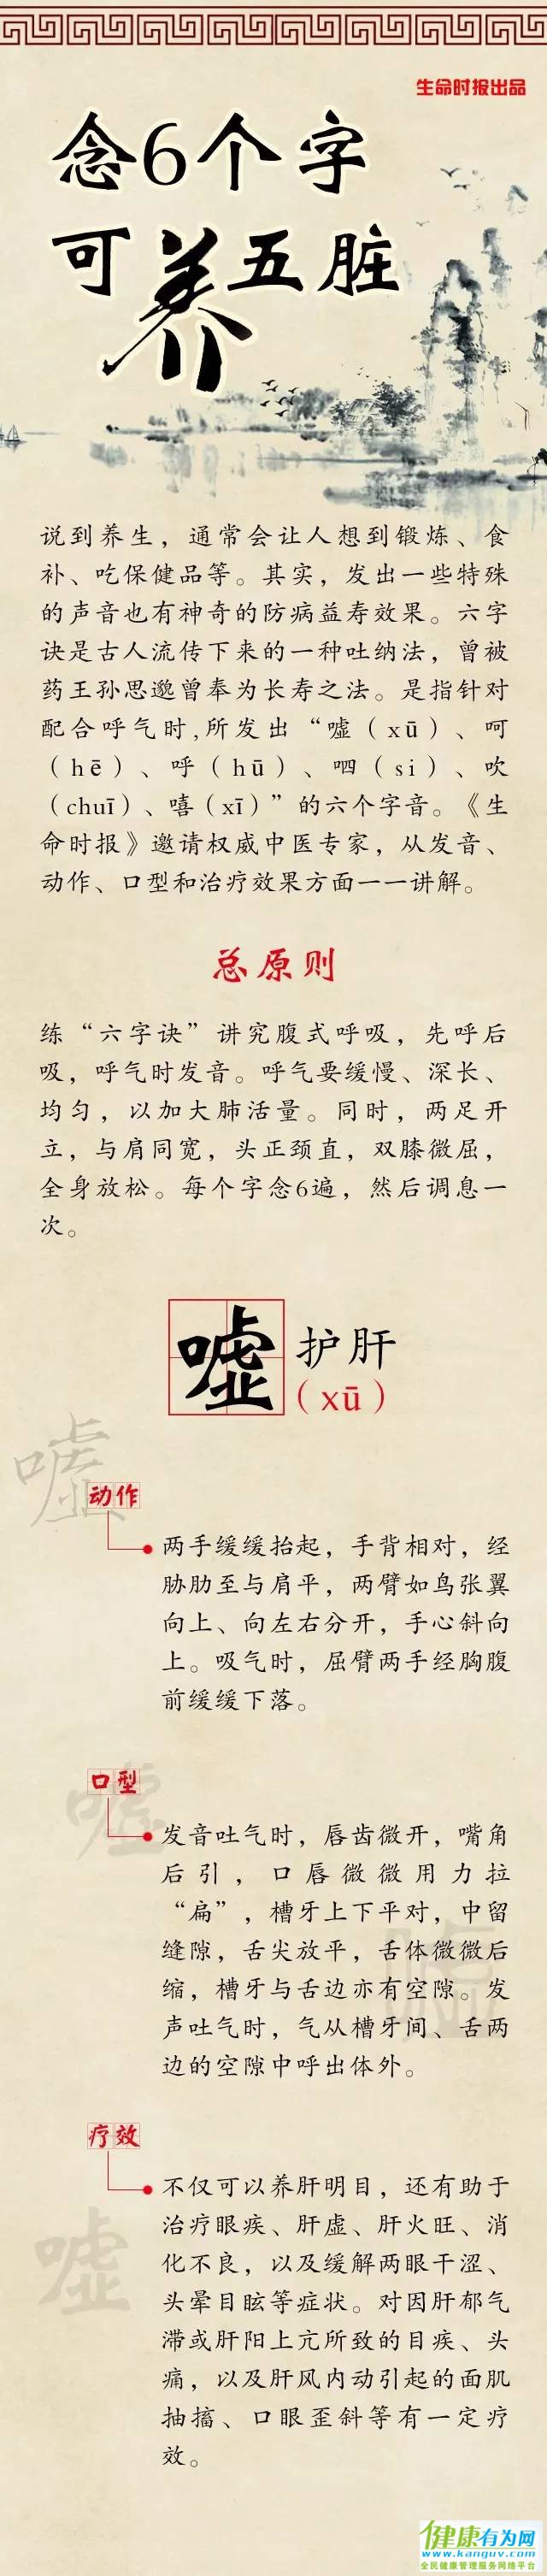 生命时报出品
念6个字
可养五脏
说到养生，通常会让人想到锻炼、食
补、吃保健品等。其实，发出一些特殊
的声音也有神奇的防病益寿效果。六字
诀是古人流传下来的一种吐纳法，曾被
药王孙思邈曾奉为长寿之法。是指针对
配合呼气时,所发出“嘘（xū）、呵
（hē）、呼（hū）、呬（si）、吹
（chuī）、嘻（xī）”的六个字音。《生
命时报》邀请权威中医专家，从发音、
动作、口型和治疗效果方面一一讲解。
总原则
练“六字诀”讲究腹式呼吸，先呼后
吸，呼气时发音。呼气要缓慢、深长、
均匀，以加大肺活量。同时，两足开
立，与肩同宽，头正颈直，双膝微屈，
全身放松。每个字念6遍，然后调息一
次。
嘘 护肝
（xū）
嘘
动作
两手缓缓抬起，手背相对，经
胁肋至与肩平，两臂如鸟张翼
向上、向左右分开，手心斜向
上。吸气时，屈臂两手经胸腹
前缓缓下落。
口型
嘘
发音吐气时，唇齿微开，嘴角
后引，口唇微微用力拉
“扁”，槽牙上下平对，中留
缝隙，舌尖放平，舌体微微后
缩，槽牙与舌边亦有空隙。发
声吐气时，气从槽牙间、舌两
边的空隙中呼出体外。
嘘
疗效
不仅可以养肝明目，还有助于
治疗眼疾、肝虚、肝火旺、消
化不良，以及缓解两眼干涩、
头晕目眩等症状。对因肝郁气
滞或肝阳上亢所致的目疾、头
痛，以及肝风内动引起的面肌
抽搐、口眼歪斜等有一定疗
效。
嘘
健康有为网
www.kanguv.com
全民健康管理服务网络平台